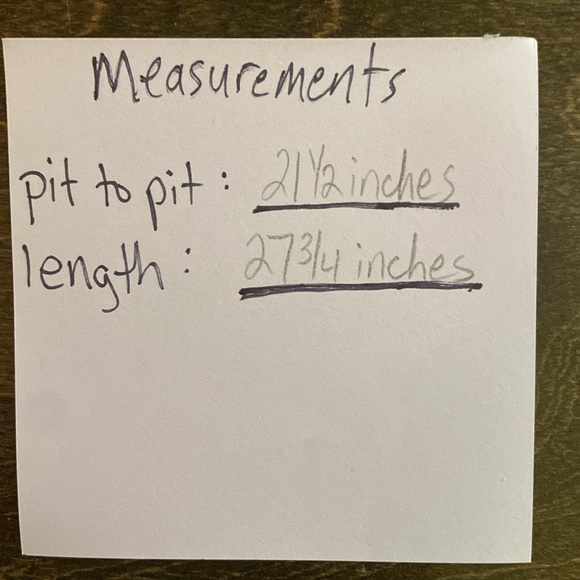 Measurements
pit to pit: 21 1/2 inches
length: 27 3/4 inches